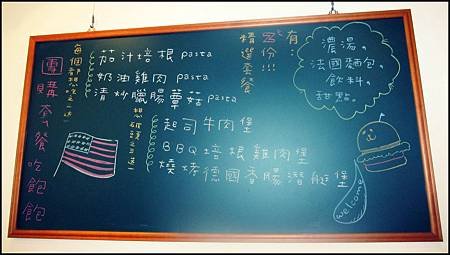 有:
精選套餐
3份!!!
濃湯。
法國麵包。
飲料。
甜點。
茄汁培根 pasta
奶油雞肉 pasta
清炒臘腸蕈菇 pasta
起司牛肉堡
BBQ培根雞肉堡
燒烤德國香腸潛艇堡
團購套餐吃飽飽
welcome